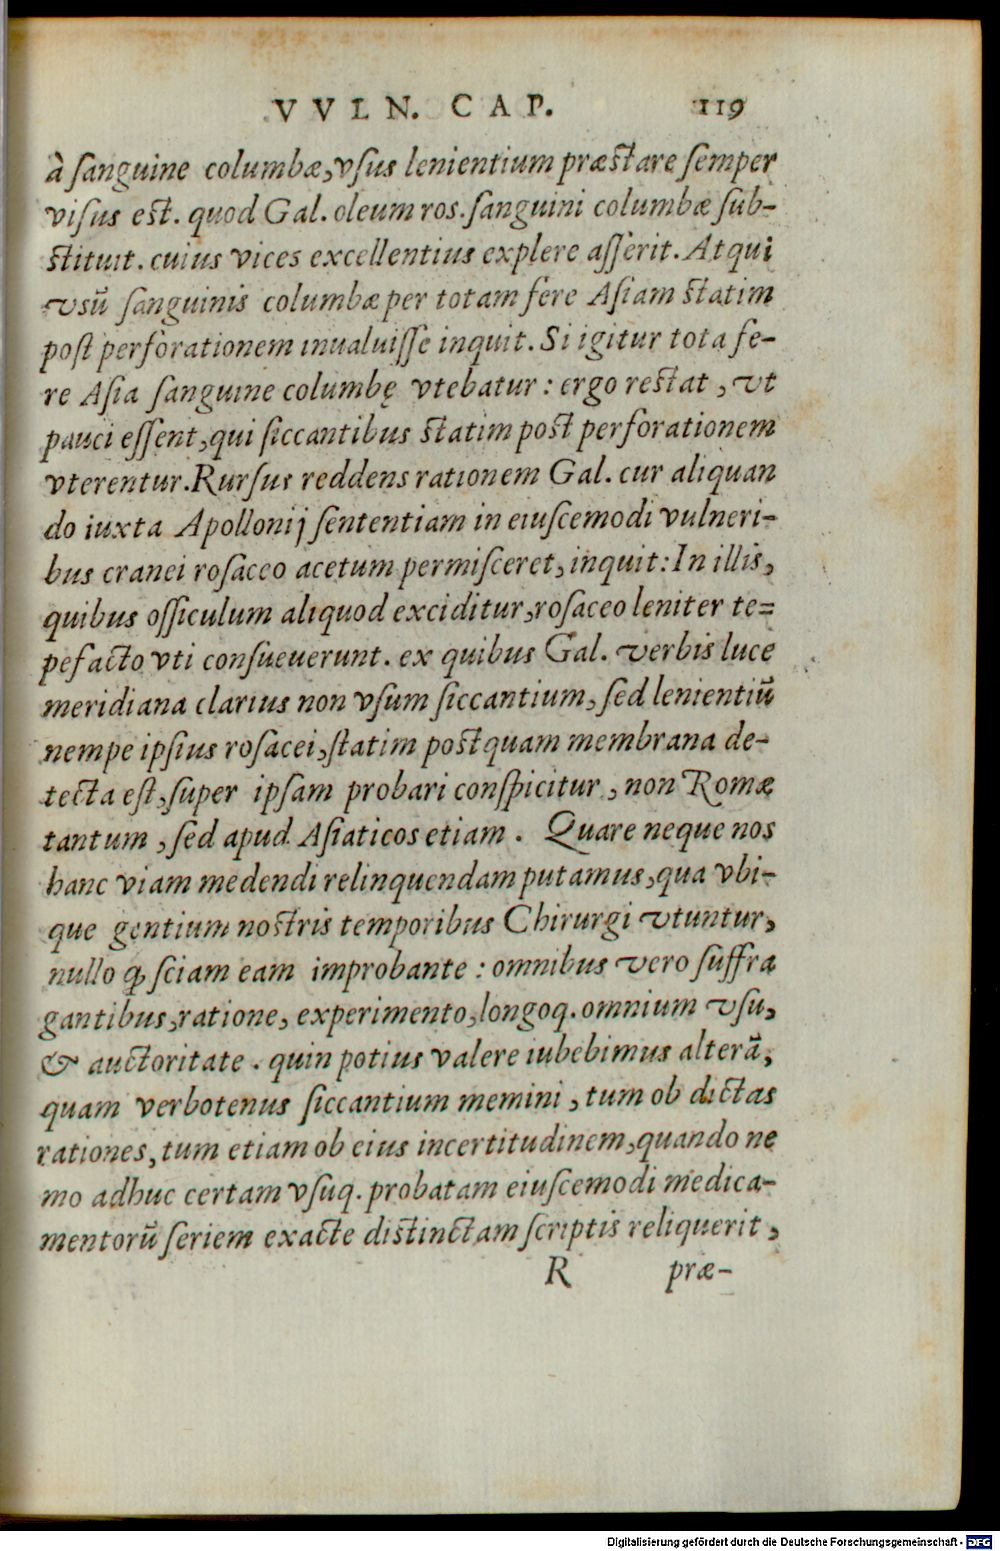 VVLN. CAP. 119
à ſanguine columbæ, vſus lenientium præſtare ſemper
viſus eſt. quod Gal. oleum roſ. ſanguini columbæ ſub-
ſtituit. cuius vices excellentius explere aſſerit. Atqui
vsū ſanguinis columbæ per totam fere Aſiam ſtatim
poſt perforationem inualuiſſe inquit. Si igitur tota fe-
re Aſia ſanguine columbę vtebatur: ergo reſtat, vt
pauci eſſent, qui ſiccantibus ſtatim poſt perforationem
vterentur. Rurſus reddens rationem Gal. cur aliquan
do iuxta Apollonij ſententiam in eiuſcemodi vulneri-
bus cranei roſaceo acetum permiſceret, inquit: In illis,
quibus oſſiculum aliquod exciditur, roſaceo leniter te=
pefacto vti conſueuerunt. ex quibus Gal. verbis luce
meridiana clarius non vſum ſiccantium, ſed lenientiū
nempe ipſius roſacei, ſtatim poſtquam membrana de-
tecta eſt, ſuper ipſam probari conſpicitur, non Romæ
tantum, ſed apud Aſiaticos etiam. Quare neque nos
hanc viam medendi relinquendam putamus, qua vbi-
que gentium noſtris temporibus Chirurgi vtuntur,
nullo ꝙ ſciam eam improbante: omnibus vero ſuffra
gantibus, ratione, experimento, longoq. omnium vſu,
& auctoritate. quin potius valere iubebimus alterā,
quam verbotenus ſiccantium memini, tum ob dictas
rationes, tum etiam ob eius incertitudinem, quando ne
mo adhuc certam vſuq. probatam eiuſcemodi medica-
mentorū ſeriem exacte diſtinctam ſcriptis reliquerit,
R præ-
Digitalisierung gefördert durch die Deutsche Forschungsgemeinschaft - DFG